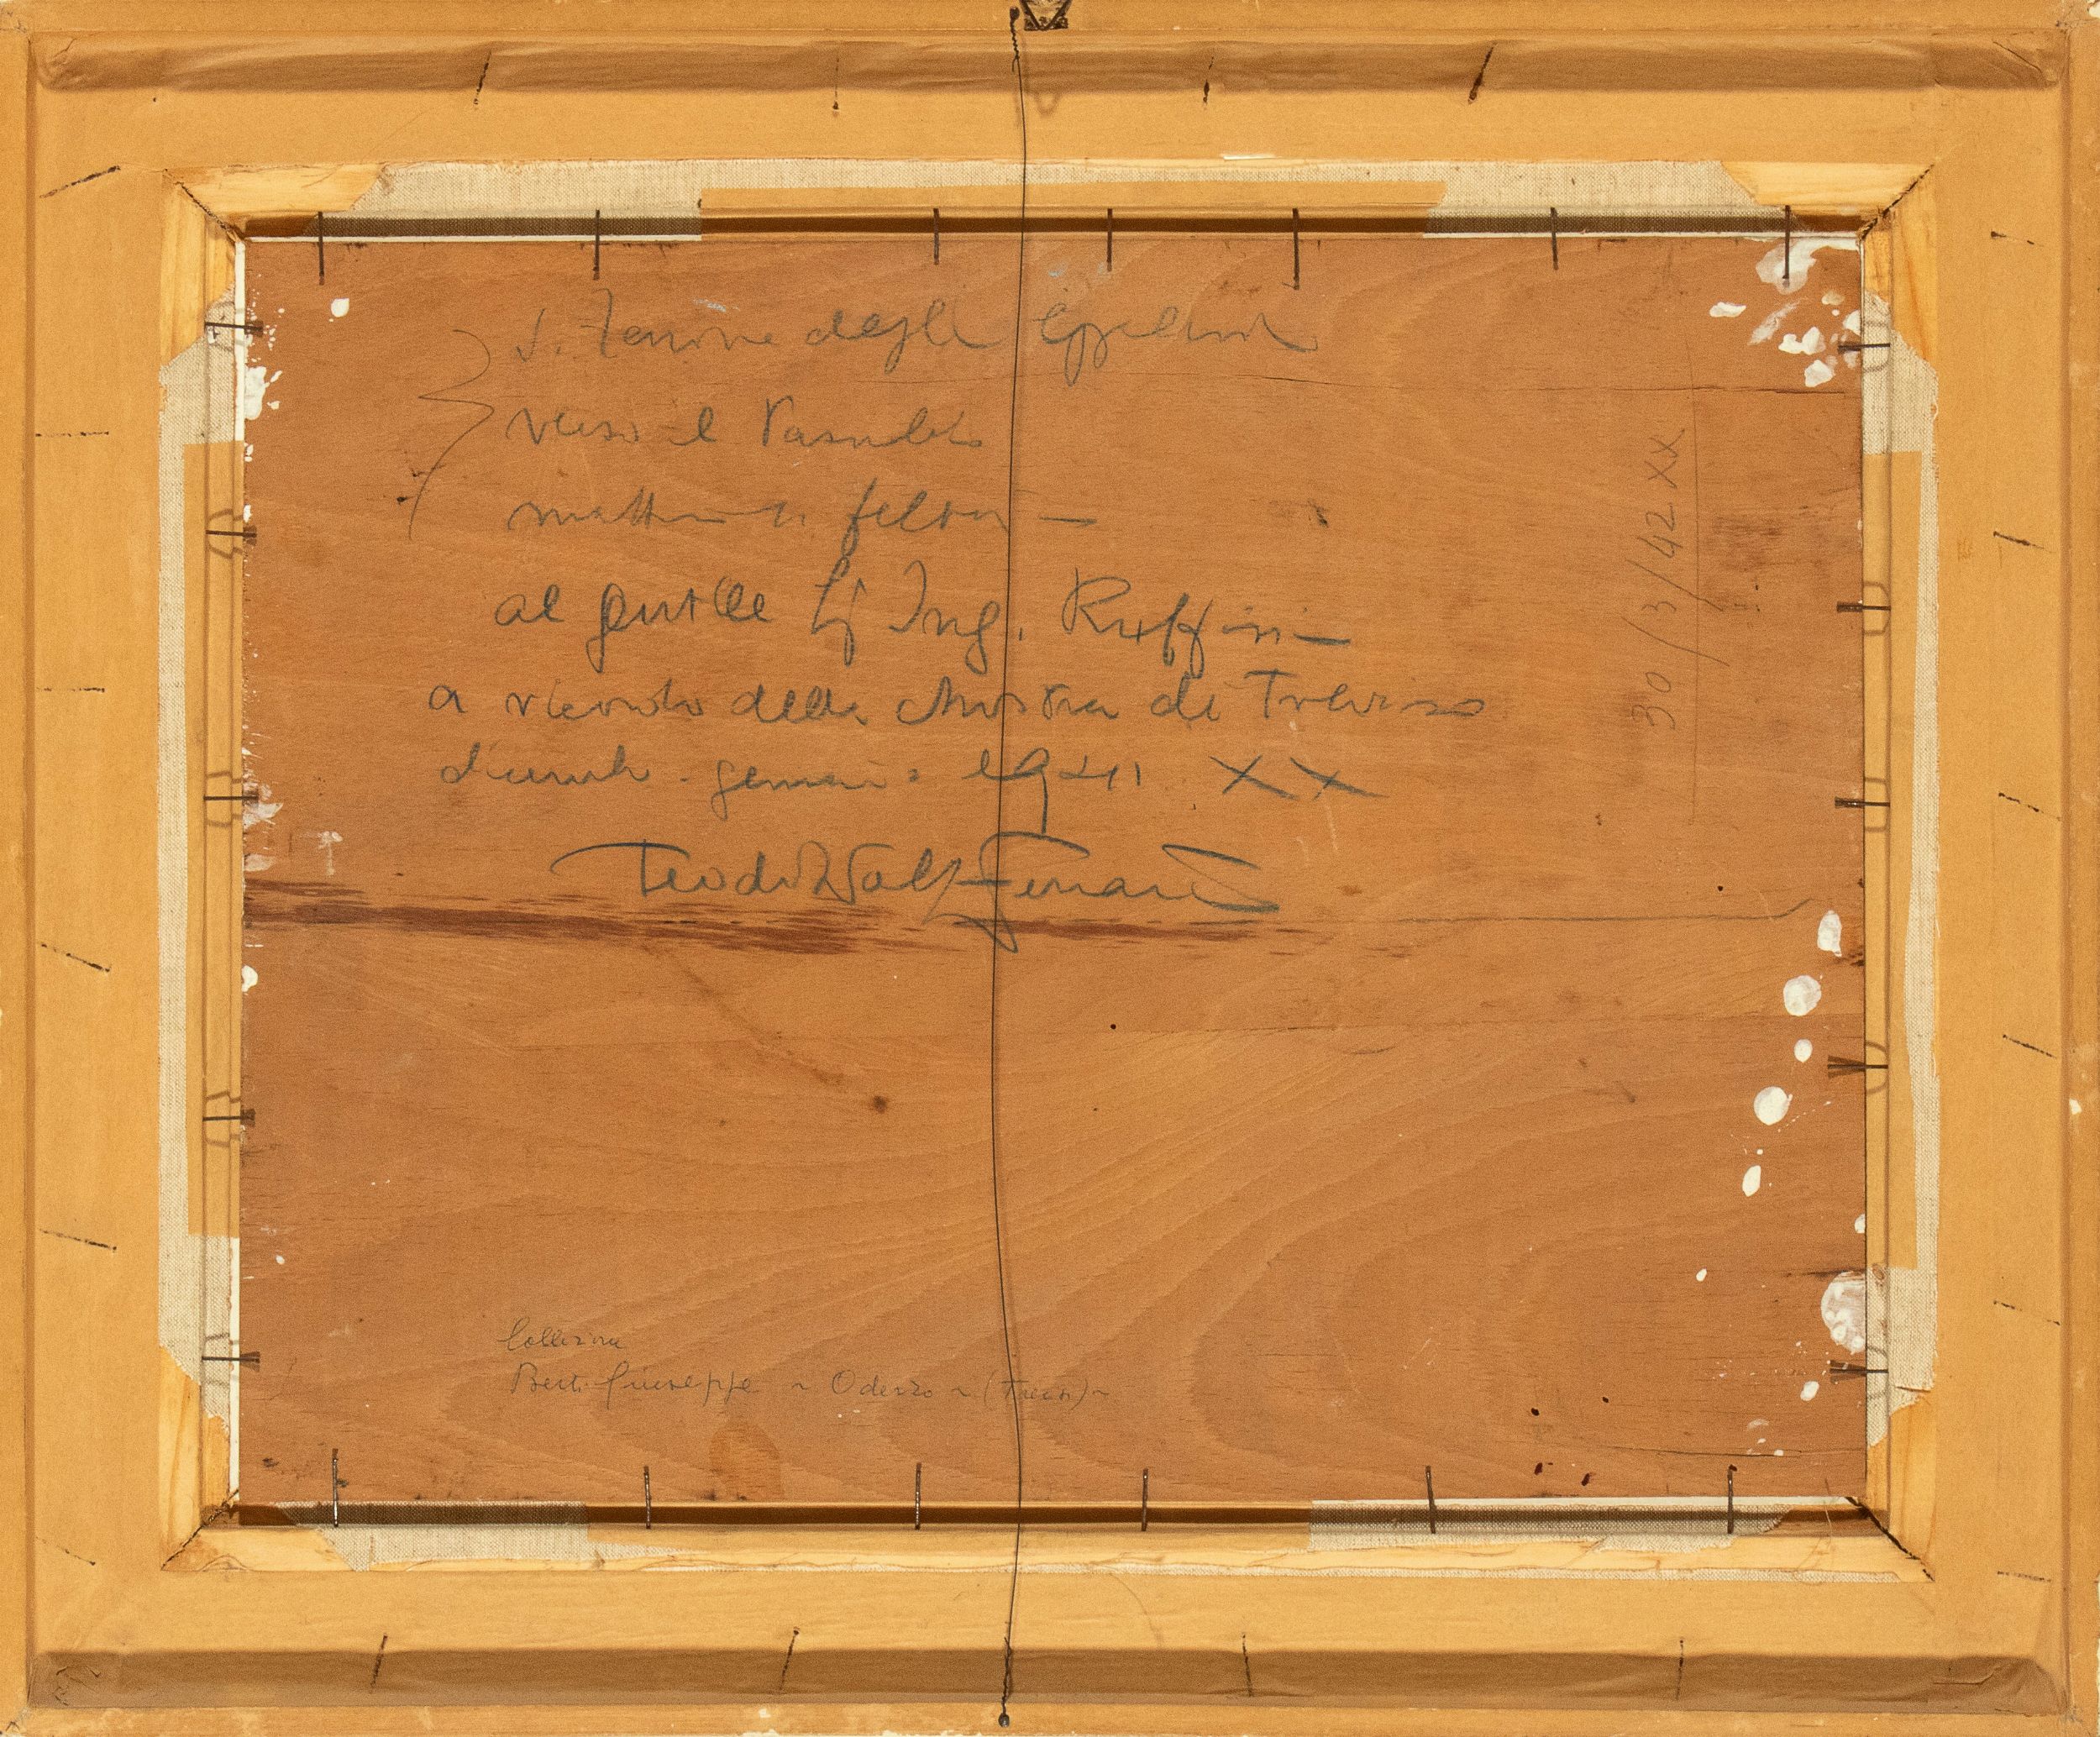 S. Zenone degli Ezzelini
verso il
al gentile Sig Ing. Ruffini
a ricordo della Mostra di Treviso
dicembre - gennaio 1941 XX
Teodoro Wolf Ferrari
30/3/42 XX
Collezione
Berti Giuseppe ~ Oderzo ~ (Treviso) ~